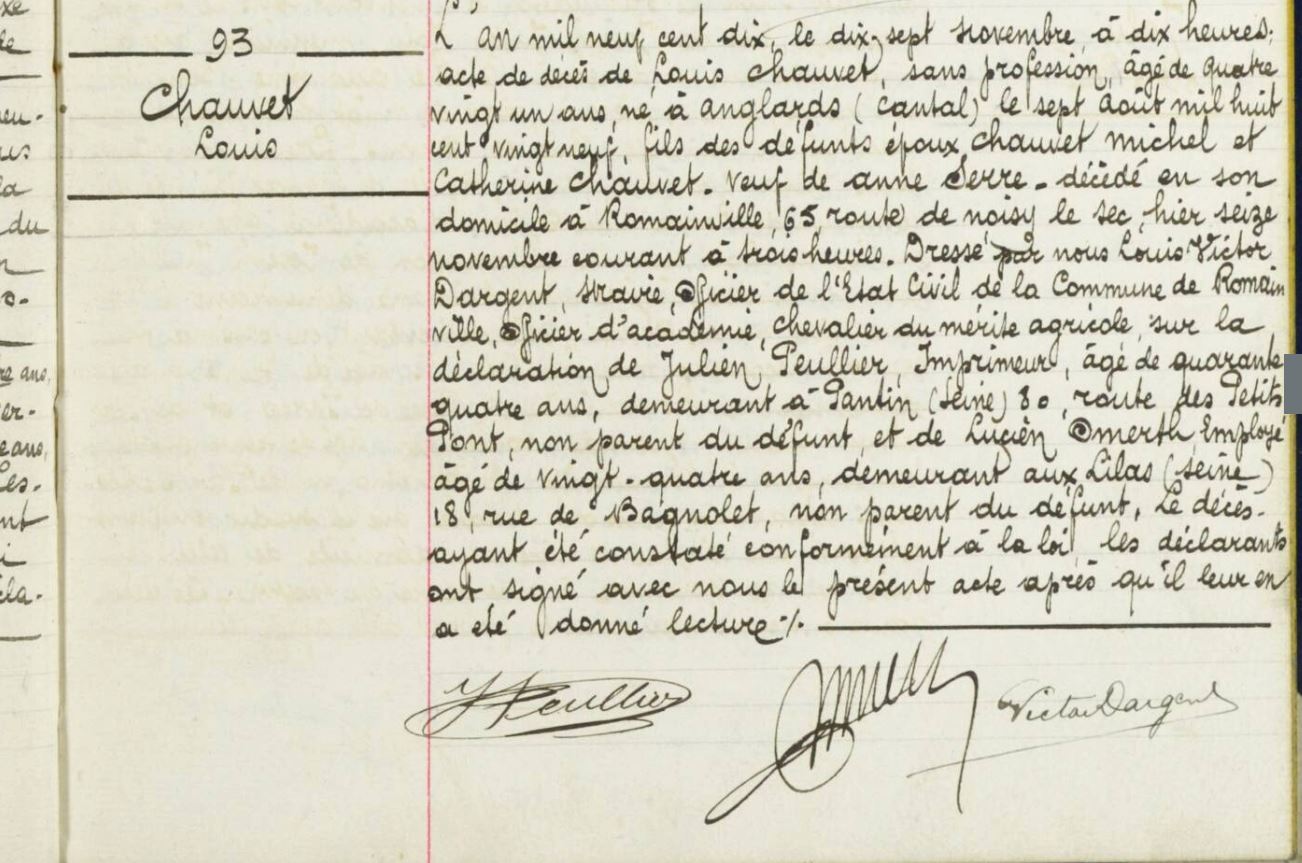 93
Chauvet
Louis
L'an mil neuf cent dix, le dix-sept novembre, à dix heures,
acte de décès de Louis Chauvet sans profession, âgé de quatre
vingt un ans, né à anglards (cantal) le sept août mil huit
cent vingt neuf, fils des défunts époux Chauvet michel et
Catherine Chauvet. veuf de anne Serre. décédé en son
domicile à Romainville, 65, route de noisy le sec, hier seize
novembre courant à trois heures. Dressé par nous Louis Victor
Dargent Maire, Officier de l'Etat Civil de la Commune de Romain
ville, Officier d'académie, chevalier du mérite agricole, sur la
déclaration de Julien Peullier, Imprimeur, âgé de quarante
quatre ans, demeurant à Pantin (Seine) 80, route des Petits
Pont, non parent du défunt et de Lucien Omerth, Employé
âgé de vingt-quatre ans, demeurant aux Lilas (Seine)
18 rue de Bagnolet, non parent du défunt. Le décès.
ayant été constaté conformément à la loi les déclarants
ont signé avec nous le présent acte après qu'il leur en
a été donné lecture ./.
J Peullier
Victor Dargent